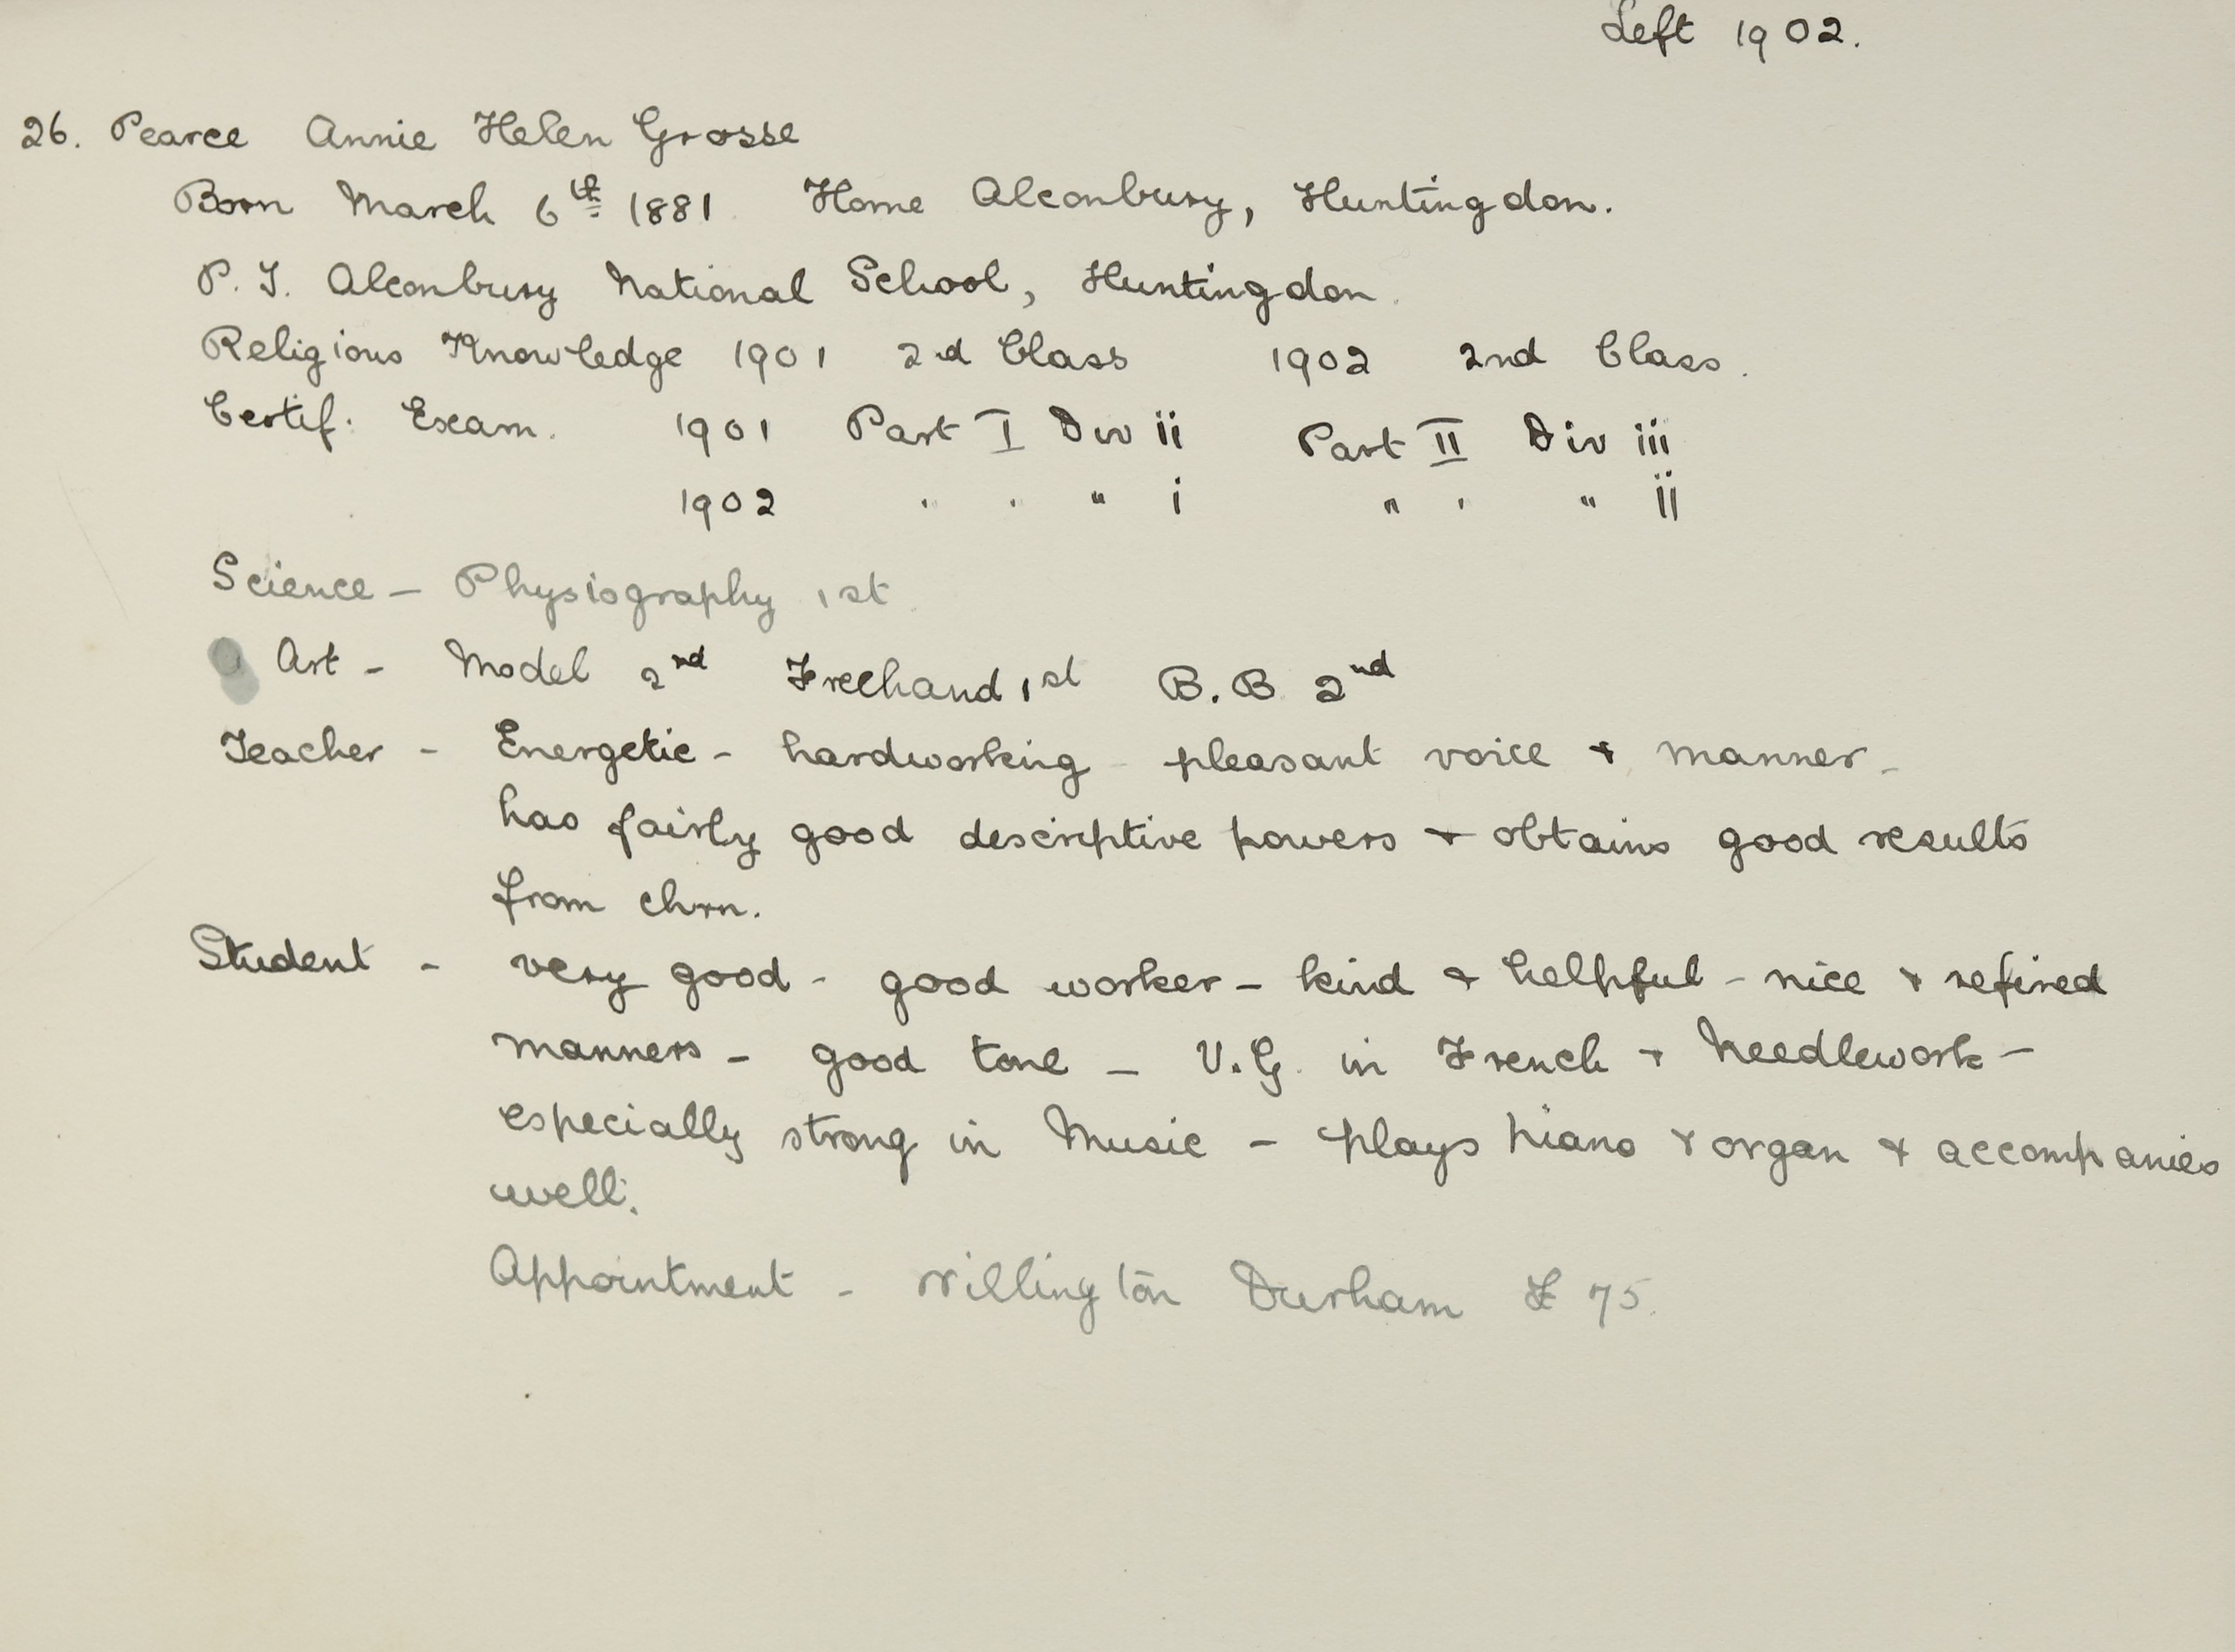 Left 1902.
26. Pearce Annie Helen Grosse
Born March 6th 1881 Home Alconbury, Huntingdon.
P. T. Alconbury National School, Huntingdon.
Religious Knowledge 1901 2nd Class 1902 2nd Class.
Certif. Exam. 1901 Part I Div ii Part II Div iii
1902 " " " i " " " ii
Science - Physiography 1st
Art - Model 2nd Freehand 1st B.B. 2nd
Teacher - Energetic - hardworking - pleasant voice & manner -
has fairly good descriptive powers & obtains good results
from chrn.
Student - very good - good worker - kind & helpful - nice & refined
manners - good tone - V.G. in French & Needlework -
especially strong in Music - plays piano & organ & accompanies
well.
Appointment - Willington Durham £75.